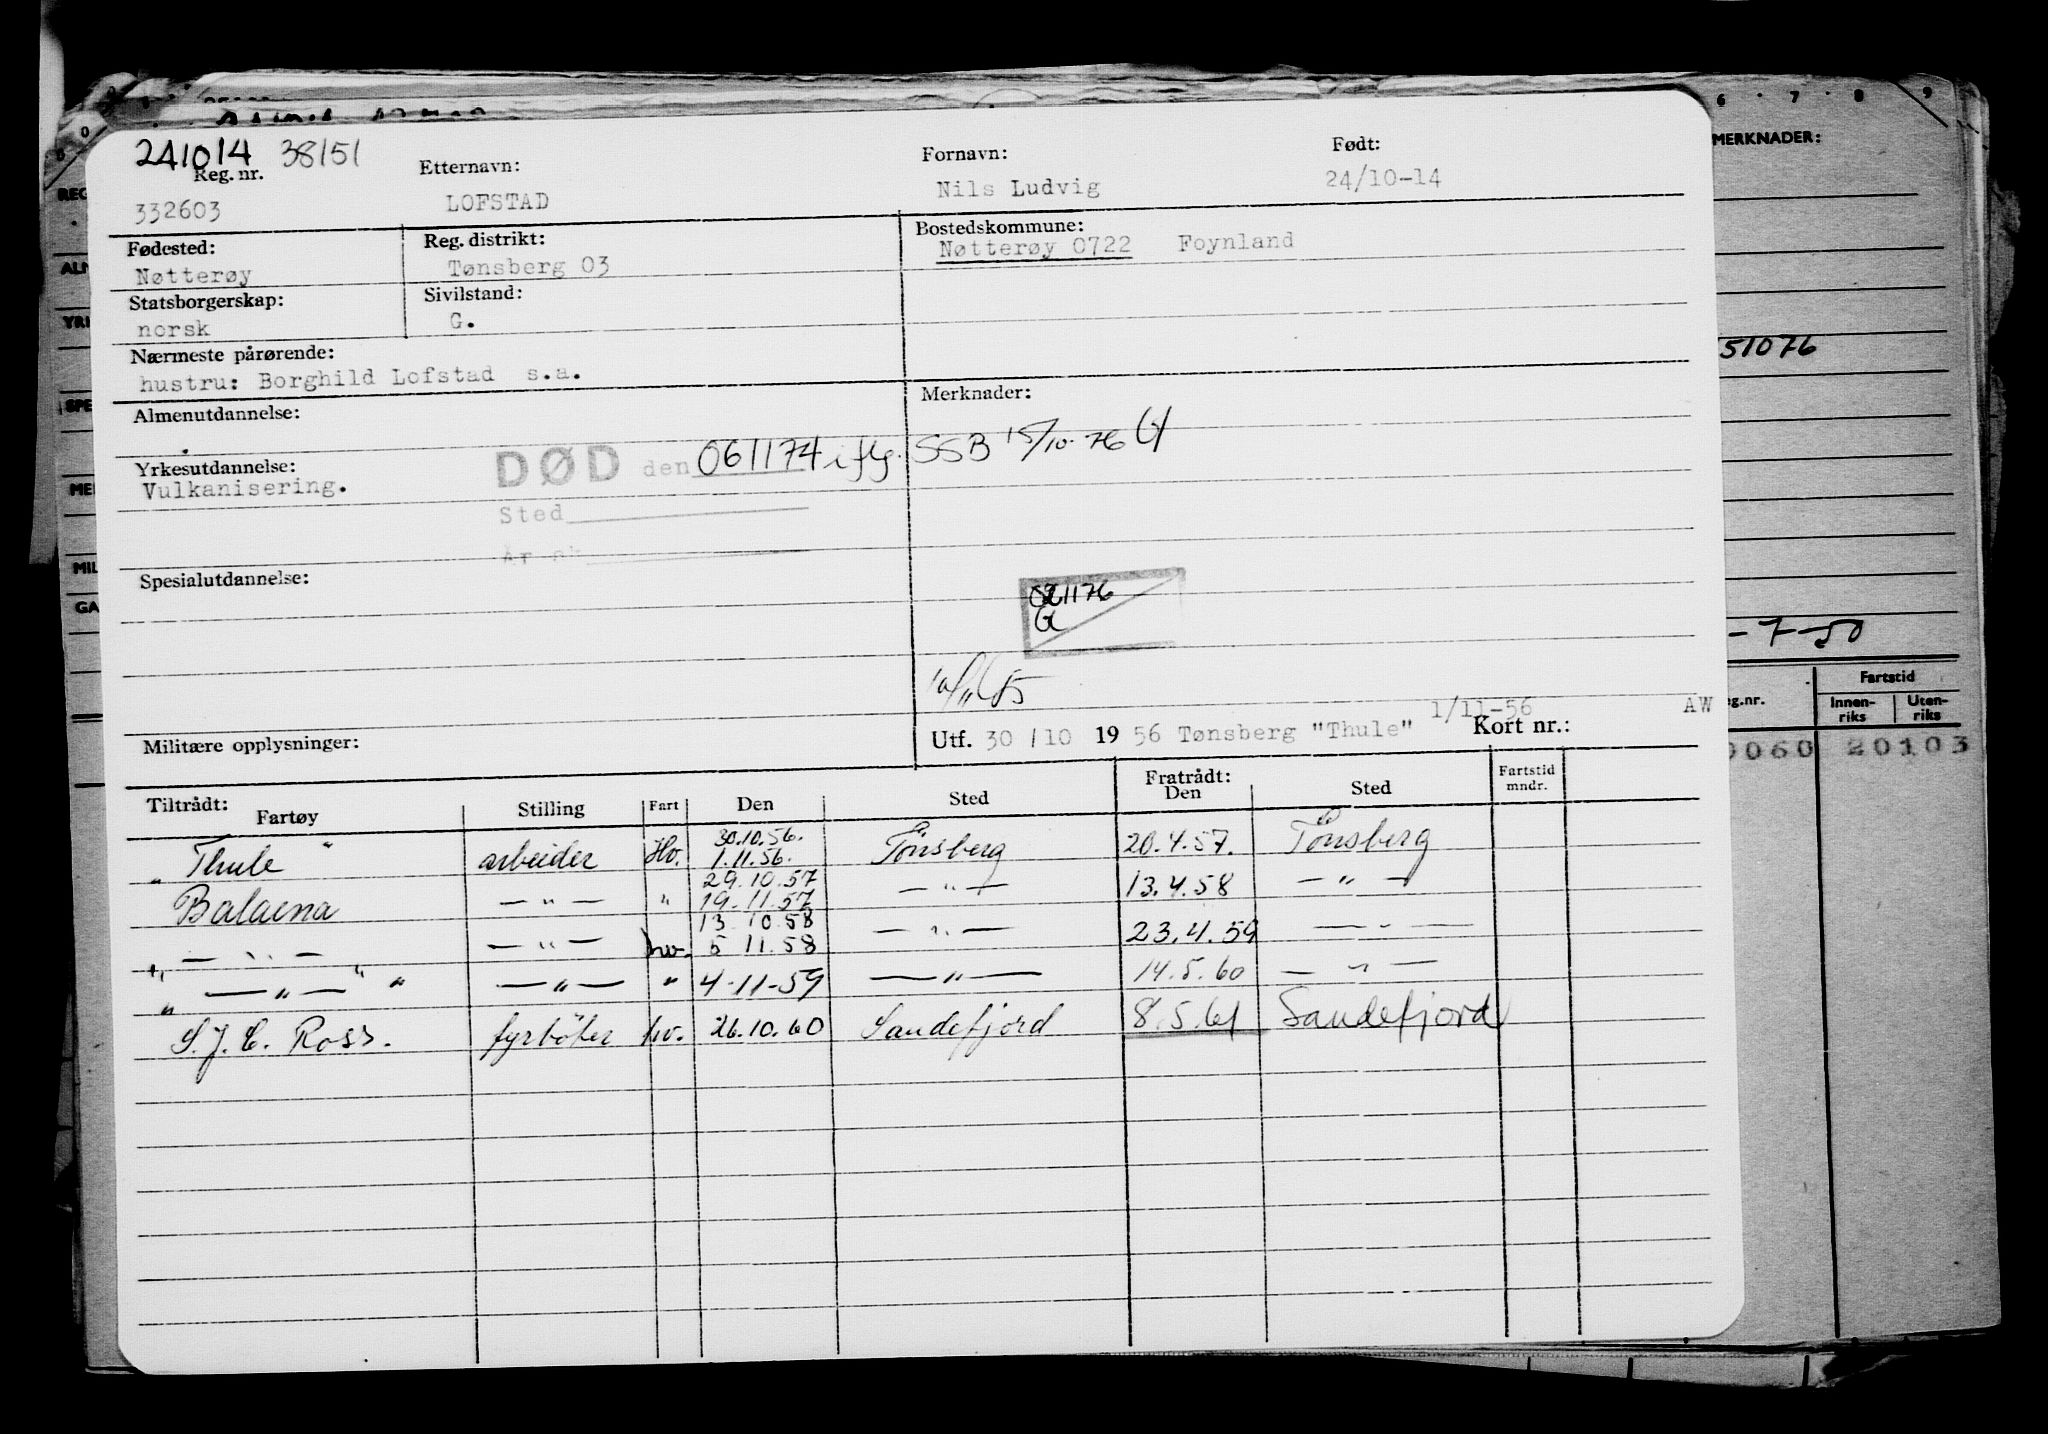 241014 38151
Reg. nr. Etternavn: Fornavn: Født:
332603 LOFSTAD Nils Ludvig 24/10-14
Fødested: Reg. distrikt: Bostedskommune:
Nøtterøy Tønsberg 03 Nøtterøy 0722 Foynland
Statsborgerskap: Sivilstand:
norsk G.
Nærmeste pårørende:
hustru: Borghild Lofstad s.a.
Almenutdannelse: Merknader:
DØD den 061174 iflg. SSB 15/10-76
Yrkesutdannelse:
Vulkanisering.
Sted
Spesialutdannelse:
021176
1/11-56 AW
Militære opplysninger: Utf. 30/10 1956 Tønsberg "Thule" Kort nr.:
Tiltrådt: Fratrådt:
Fartøy Stilling Fart Den Sted Den Sted Fartstid mndr.
30.10.56.
" Thule " arbeider Hv. 1.11.56. Tönsberg 20.4.57. Tönsberg
29.10.57
Balaena — " — " 19.11.57 — " — 13.4.58 — " —
13 10 58
— " — — " — hv. 5 11.58 — " — 23.4.59 — " —
" — " — " " — " — " 4-11-59 — " — 14.5.60 — " —
S.J.C. Ross. fyrböter hv. 26.10.60 Sandefjord 8.5.61 Sandefjord
6 7 8 9
MERKNADER:
51076
-7-50
Fartstid
g.nr. Innen-riks Uten-riks
0060 20103